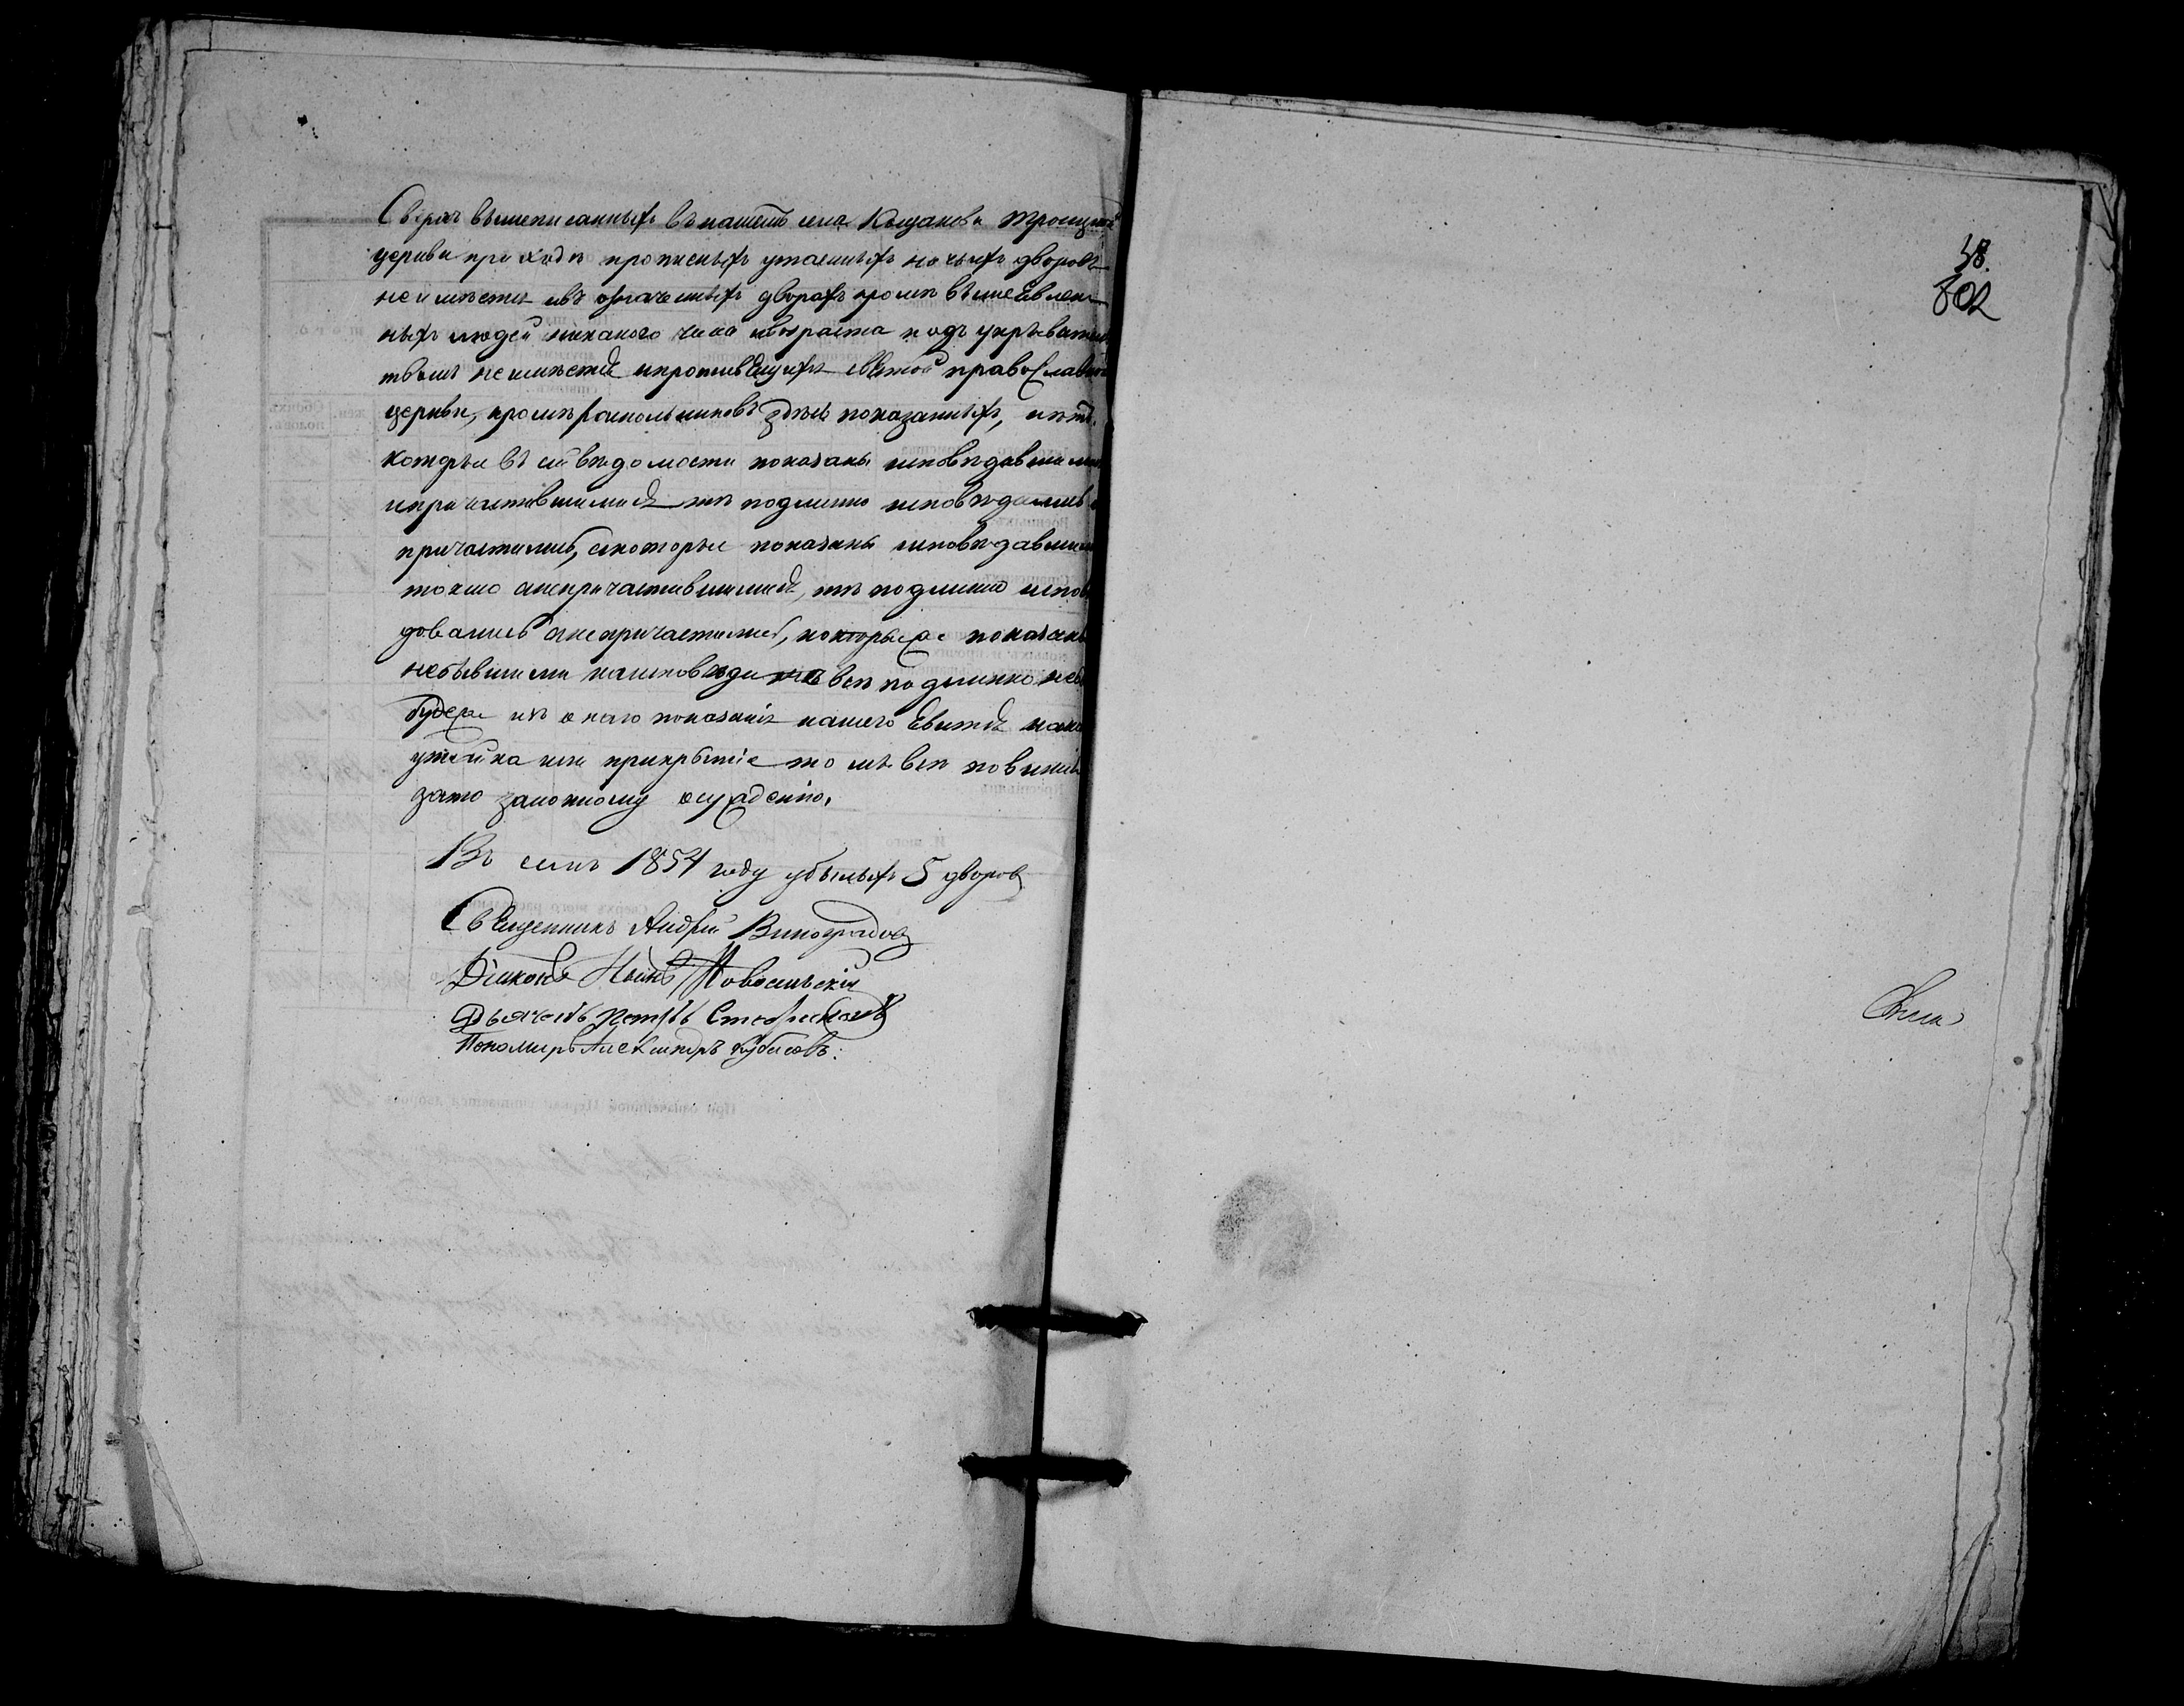 Сверхъ вышеписанныхъ въ нашемъ селѣ Троицкой
церкви приходѣ прописныхъ утаенныхъ ничьихъ дворовъ
неимѣется ивъ означенныхъ дворахъ кромѣ вышеявлен
ныхъ людей никакого чина ивозраста подъ укрыватель
твомъ неимѣется ипротивящихся святой православной
церкви, кромѣ раскольниковъ здѣсь показанныхъ, нѣтъ.
которые въ сей вѣдомости показаны исповѣдавшимися
ипричастившимися тѣ подлинно исповѣдались и
причастились, акоторые показаны исповѣдавшим
токмо анепричастившимися, тѣ подлинно испов
довались анепричастились, акоторыеже показаны
небывшими наисповѣди тѣ всѣ подлинно неб
будеже изъ онаго показанія нашего явится какая
утайка или прикрытіе то мы всѣ повинны
зато законному осужденію.
Въ семъ 1854 году убылыхъ 5 дворовъ
Священникъ Андрей Виноградовъ
Діаконъ Новосильскій
Дьячекъ Петръ
Пономарь Александръ Кубасовъ.
38.
802